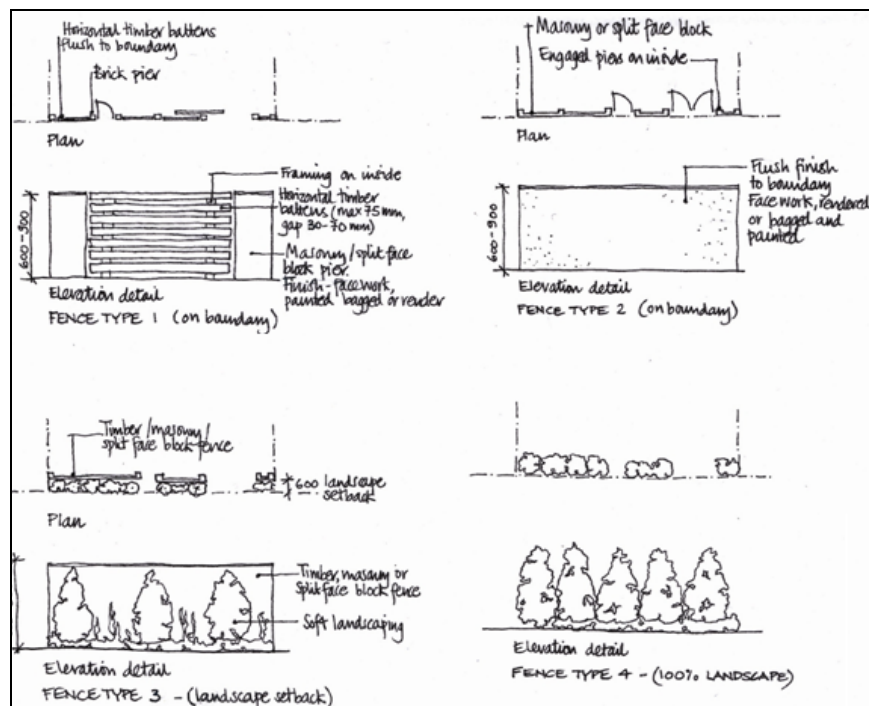 Horizontal timber battens
flush to boundary
Brick pier
Plan
Framing on inside
Horizontal timber
battens (max 75 mm,
gap 30-70 mm)
Masonry/split face
block pier.
Finish - facework,
painted bagged or render
600-900
Elevation detail
FENCE TYPE 1 (on boundary)
Masonry or split face block
Engaged piers on inside
Plan
Flush finish
to boundary
Face work, rendered
or bagged and
painted
600-900
Elevation detail
FENCE TYPE 2 (on boundary)
Timber/masonry/
split face block fence
600 landscape
setback
Plan
Timber, masonry or
Split face block fence
Soft landscaping
Elevation detail
FENCE TYPE 3 - (landscape setback)
Elevation detail
FENCE TYPE 4 - (100% LANDSCAPE)